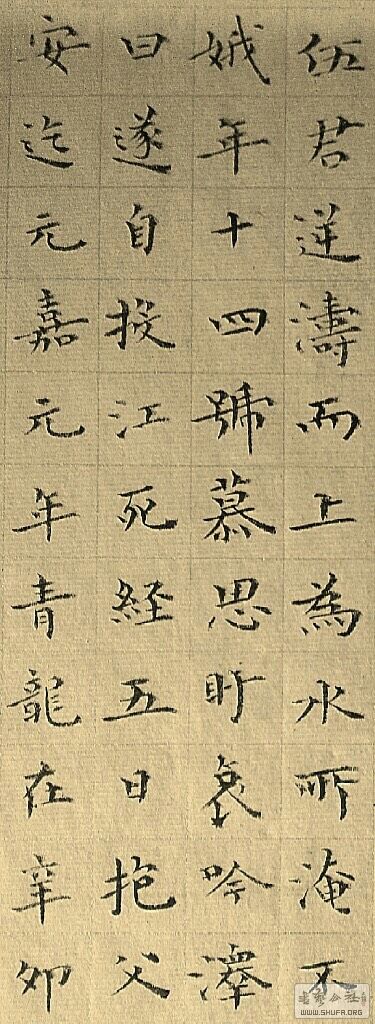 伍君逆濤而上為水所淹不
娥年十四號慕思盱哀吟澤
日遂自投江死経五日抱父
安迄元嘉元年青龍在辛卯
書藝公社
WWW.SHUFA.ORG